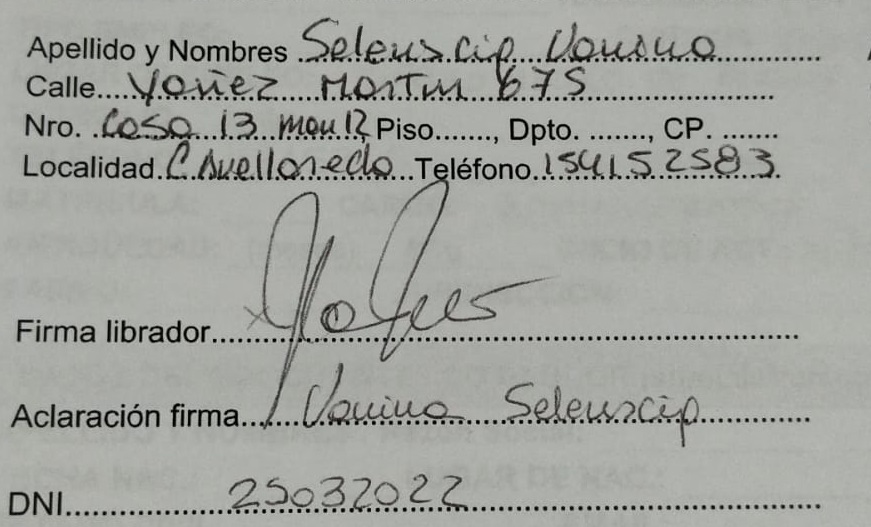 Apellido y Nombres Seleuscip Vanina
Calle Yañez Martin 675
Nro. Casa 13 mon 12, Piso........, Dpto. ........, CP. ........
Localidad C Avellaneda Teléfono 154152583
Firma librador
Aclaración firma Vanina Seleuscip
DNI 25032022